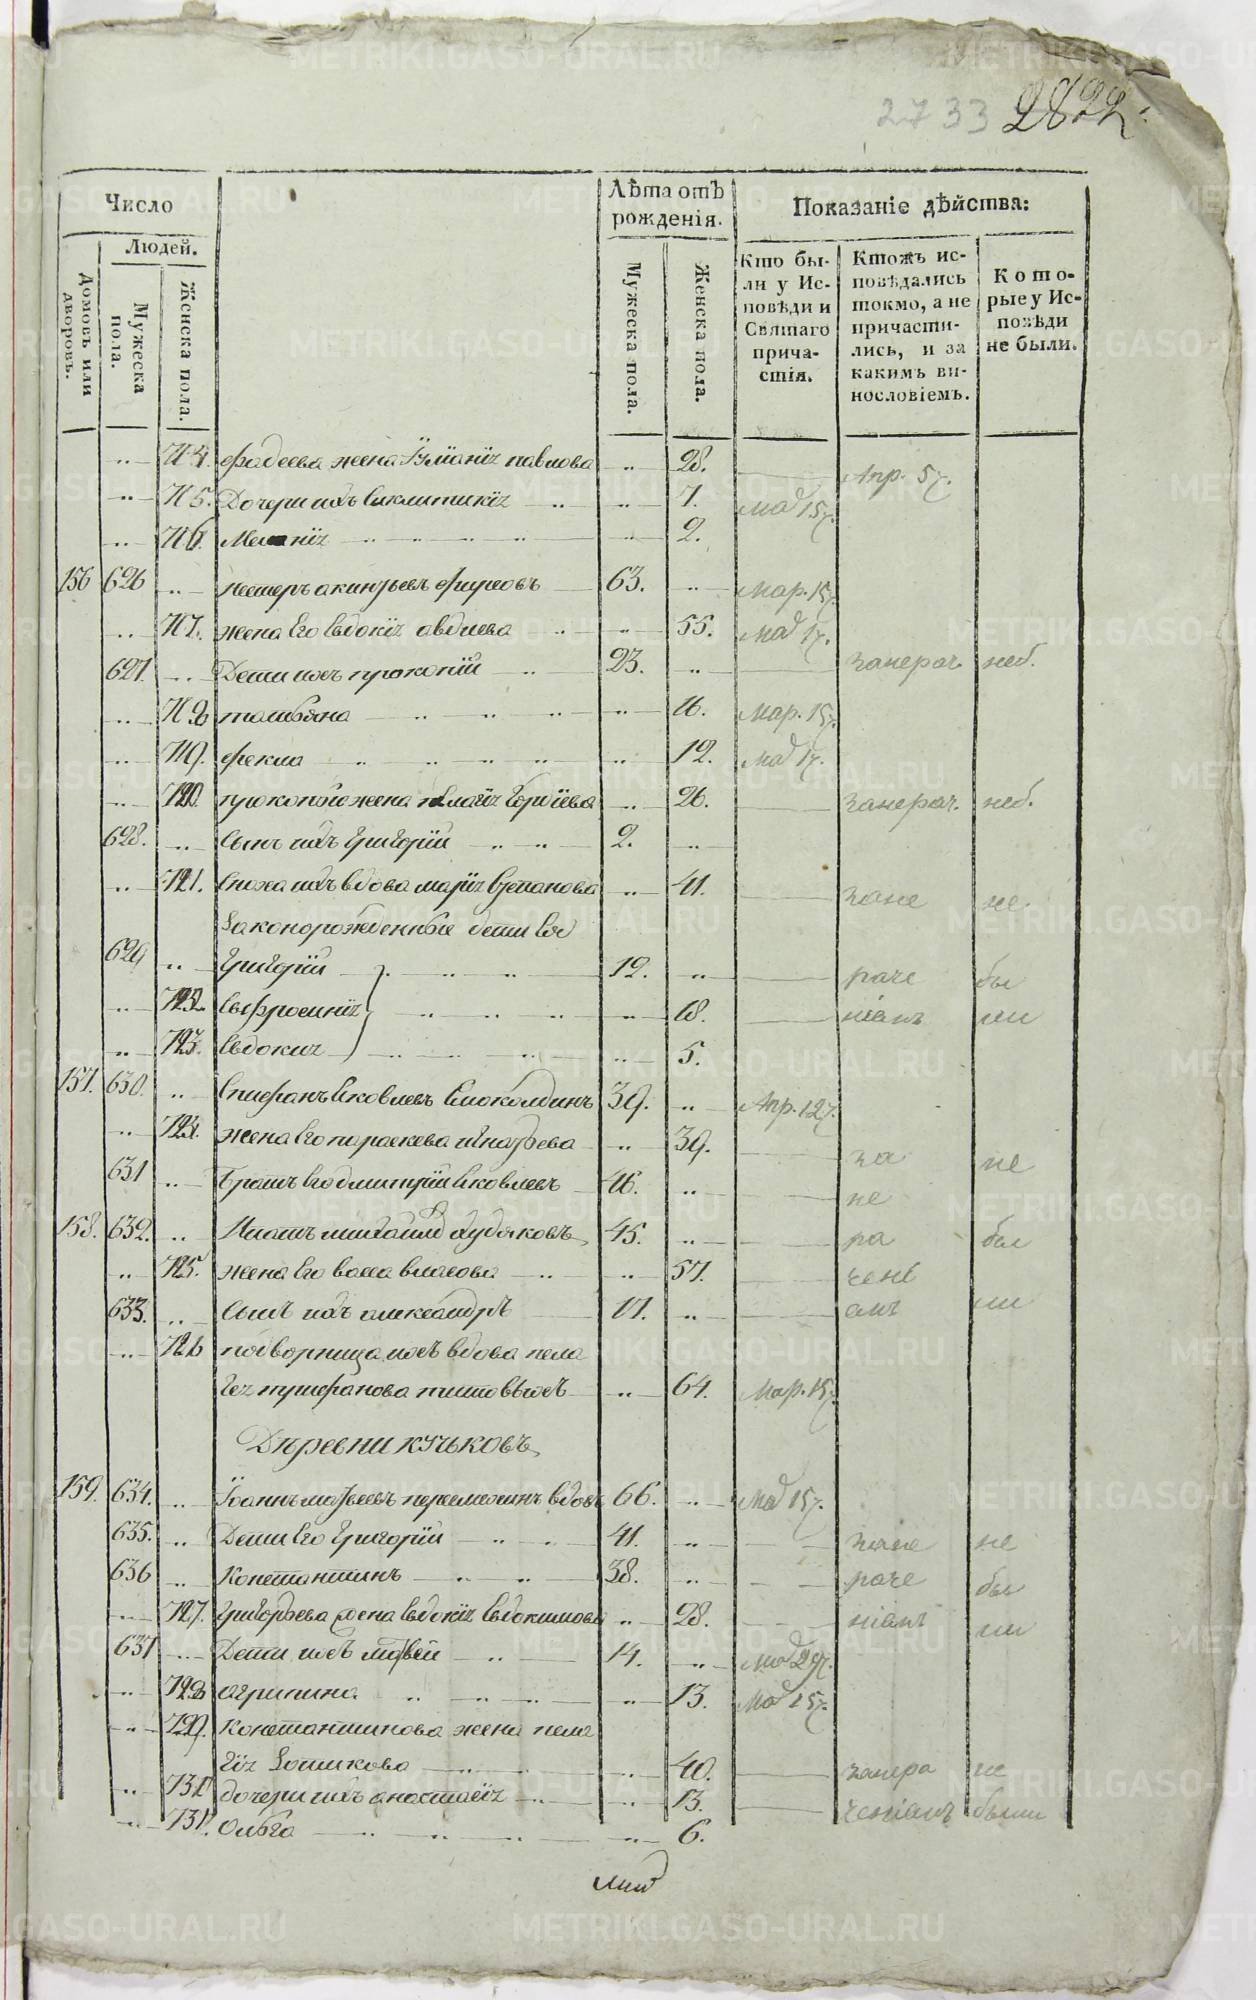 2733 2822
Число
Людей.
Домовъ или дворовъ.
Мужеска пола.
Женска пола.
Лѣта отъ рожденія.
Мужеска пола.
Женска пола.
Показаніе дѣйства:
Кто бы-
ли у Ис-
повѣди и
Святаго
прича-
стія.
Ктожъ ис-
повѣдались
токмо, а не
причасти-
лись, и за
какимъ ви-
нословіемъ.
Кото-
рые у Ис-
повѣди
не были.
714. Фадеева жена Іулианіа павлова 28. Апр. 5
715. Дочери ихъ 7. 15
716. 2.
156 626 Нестеръ акинфьевъ 63. Мар. 15
717. жена Его Евдокіа авдиева 55. 17.
627. Дети ихъ прокопий 23. занерач. неб.
718 татьяна 16. Мар. 15
719. фекла 12. 17.
720. жена 26. занерач. неб.
628. Сынъ ихъ Григорій 2.
721. Сноха ихъ вдова маріа Степанова 41. зане не
Законорожденныя дети Ея
629 Григорій 12. раче бы
722. Евфросиніа 18. ніемъ ли
723. Евдокиа 5.
157. 630. Стефанъ Яковлевъ 39. Апр. 12
724. жена Его параскева Игнатьева 39. за не
631 Братъ Его димитрій Яковлевъ 16. не
158. 632. михаилъ худяковъ 45. ра бы
725. жена Его васса власова 57. чені
633. Сынъ ихъ александръ 17. емъ ли
726 подворница ихъ вдова пела
геа 64. Мар. 15
Деревни кучковъ
159. 634. Іоаннъ матфеевъ вдовъ 66. 15
635. Дети Его Григорій 41. зане не
636 Константинъ 38. раче бы
727. Григорьева жена Евдокіа Евдокимова 28. ніемъ ли
637 Дети ихъ матвей 14. 29
728 агрипина 13. 15
729. Константинова жена пела
гіа Зотикова 40. занера не
730 дочери ихъ анастасіа 13. ченіемъ были
731. Ольга 6.